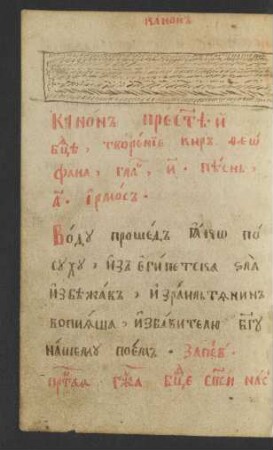 канонъ
Канонъ прест҃ѣ и҆
бц҃ѣ, творенїе киръ ѳеѡ
фана, гла҃, и҃. пѣснь,
а҃. і҆рмосъ.
Воду прошедъ ꙗ҆кѡ по
суху, и҆зъ еги́петска ѕла
и҆збѣжавъ, и҆зраильтѧнинъ
вопиѧша, и҆збавителю бг҃у
нашему поемъ. Запѣв.
прт҃аѧ гж҃а бц҃е сп҃си насъ